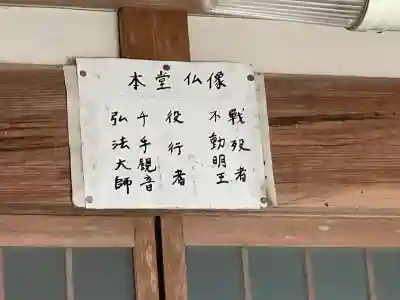 本堂仏像
戦歿者
不動明王
役行者
千手観音
弘法大師